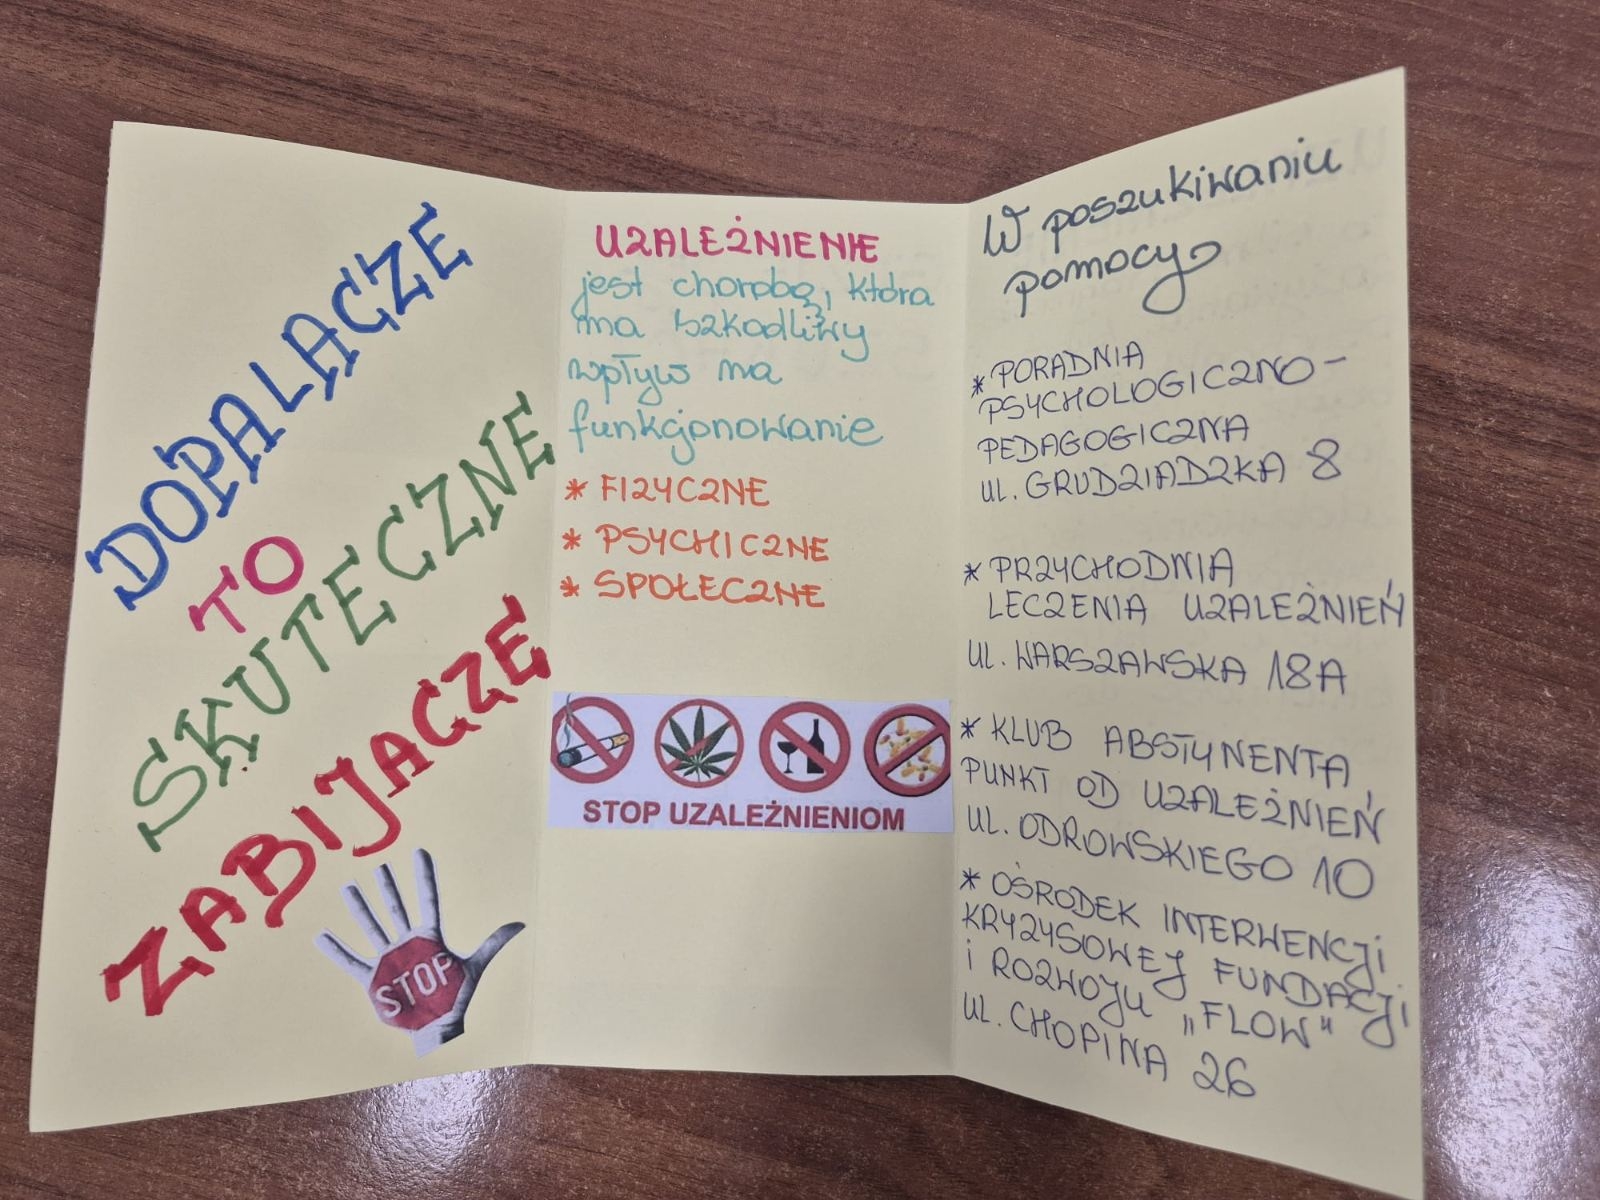 DOPALACZE
TO
SKUTECZNE
ZABIJACZE
STOP
UZALEŻNIENIE
jest chorobą, która
ma szkodliwy
wpływ na
funkcjonowanie
* FIZYCZNE
* PSYCHICZNE
* SPOŁECZNE
STOP UZALEŻNIENIOM
W poszukiwaniu
pomocy
* PORADNIA
PSYCHOLOGICZNO-
PEDAGOGICZNA
UL. GRUDZIADZKA 8
* PRZYCHODNIA
LECZENIA UZALEŻNIEŃ
UL. WARSZAWSKA 18A
* KLUB ABSTYNENTA
PUNKT OD UZALEŻNIEŃ
UL. ODROWSKIEGO 10
* OŚRODEK INTERWENCJI
KRYZYSOWEJ FUNDACJI
i ROZWOJU „FLOW"
UL. CHOPINA 26